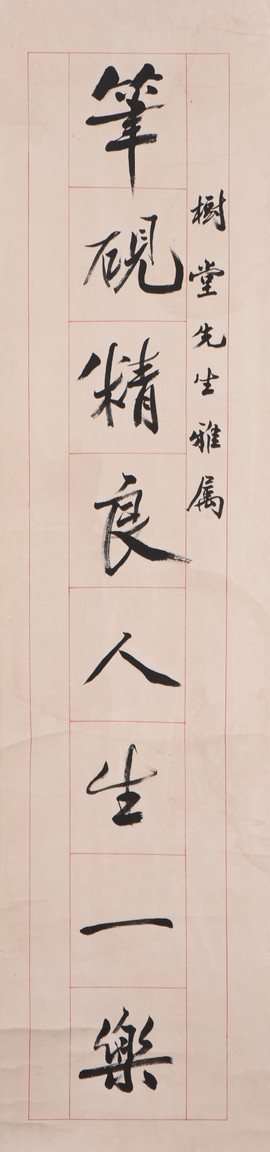 樹堂先生雅属
筆硯精良人生一樂